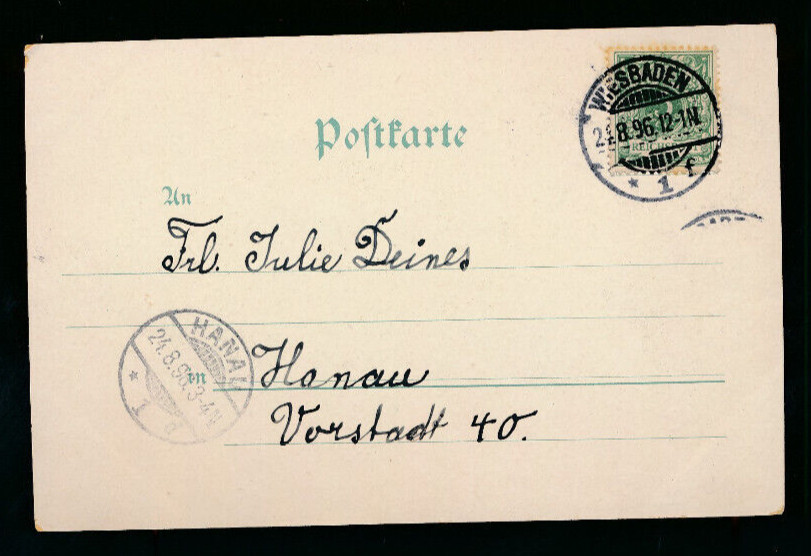 Postkarte
WIESBADEN
24.8.96.12-1N.
REICHSPOST
* 1 f
An
Frl. Julie Deines
HANAU
24.8.96.3-4N
* 1
in Hanau
Vorstadt 40.